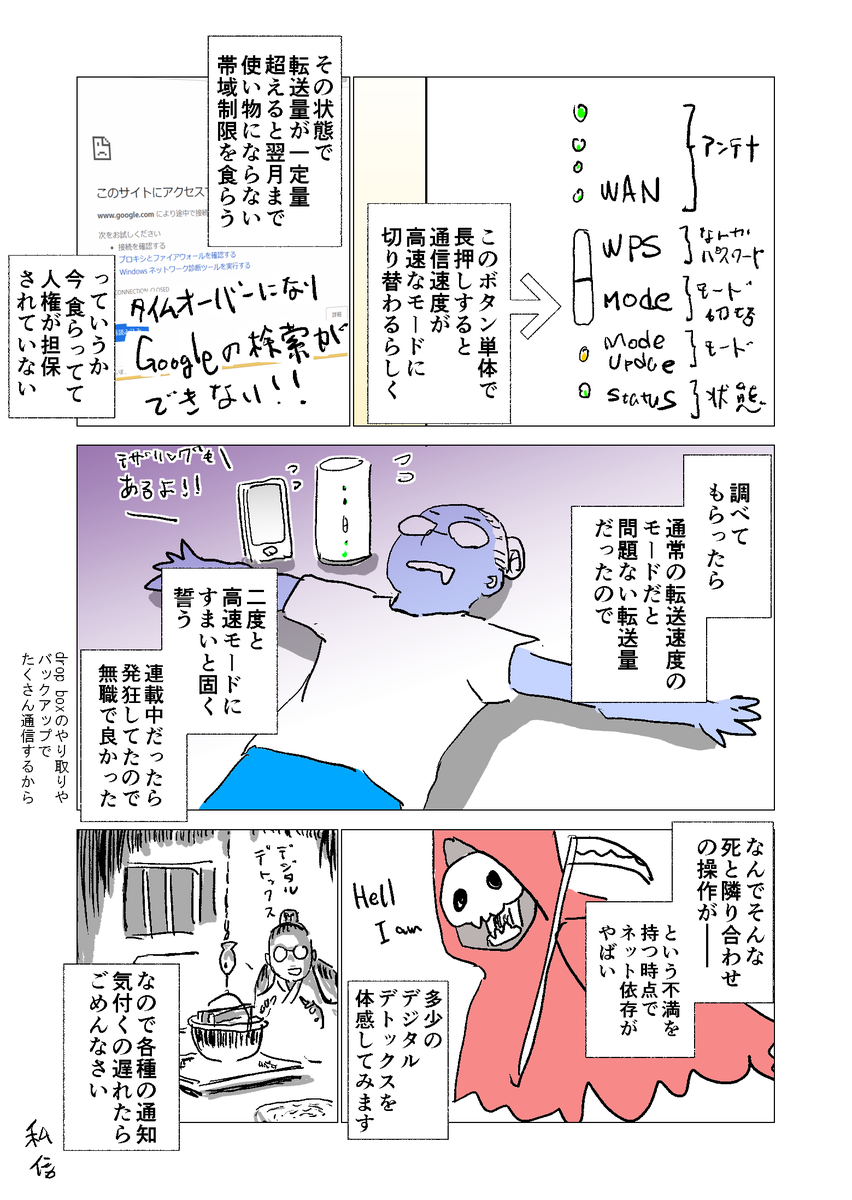 アンテナ
WAN
WPS
なんか
パスワード
MODE
モード
切替
Mode
Update
モード
Status
状態
このボタン単体で
長押しすると
通信速度が
高速なモードに
切り替わるらしく
その状態で
転送量が一定量
超えると翌月まで
使い物にならない
帯域制限を食らう
このサイトにアクセスで
www.google.com により途中で接続
次をお試しください
• 接続を確認する
プロキシとファイアウォールを確認する
Windows ネットワーク診断ツールを実行する
CONNECTION_CLOSED
詳細
タイムオーバーになり
Googleの検索が
できない!!
っていうか
今 食らってて
人権が担保
されていない
調べて
もらったら
通常の転送速度の
モードだと
問題ない転送量
だったので
テザリングも
あるよ!!
二度と
高速モードに
すまいと固く
誓う
連載中だったら
発狂してたので
無職で良かった
drop boxのやり取りや
バックアップで
たくさん通信するから
なんでそんな
死と隣り合わせ
の操作が――
という不満を
持つ時点で
ネット依存が
やばい
Hell
I am
多少の
デジタル
デトックスを
体感してみます
デジタル
デトックス
なので各種の通知
気付くの遅れたら
ごめんなさい
私信